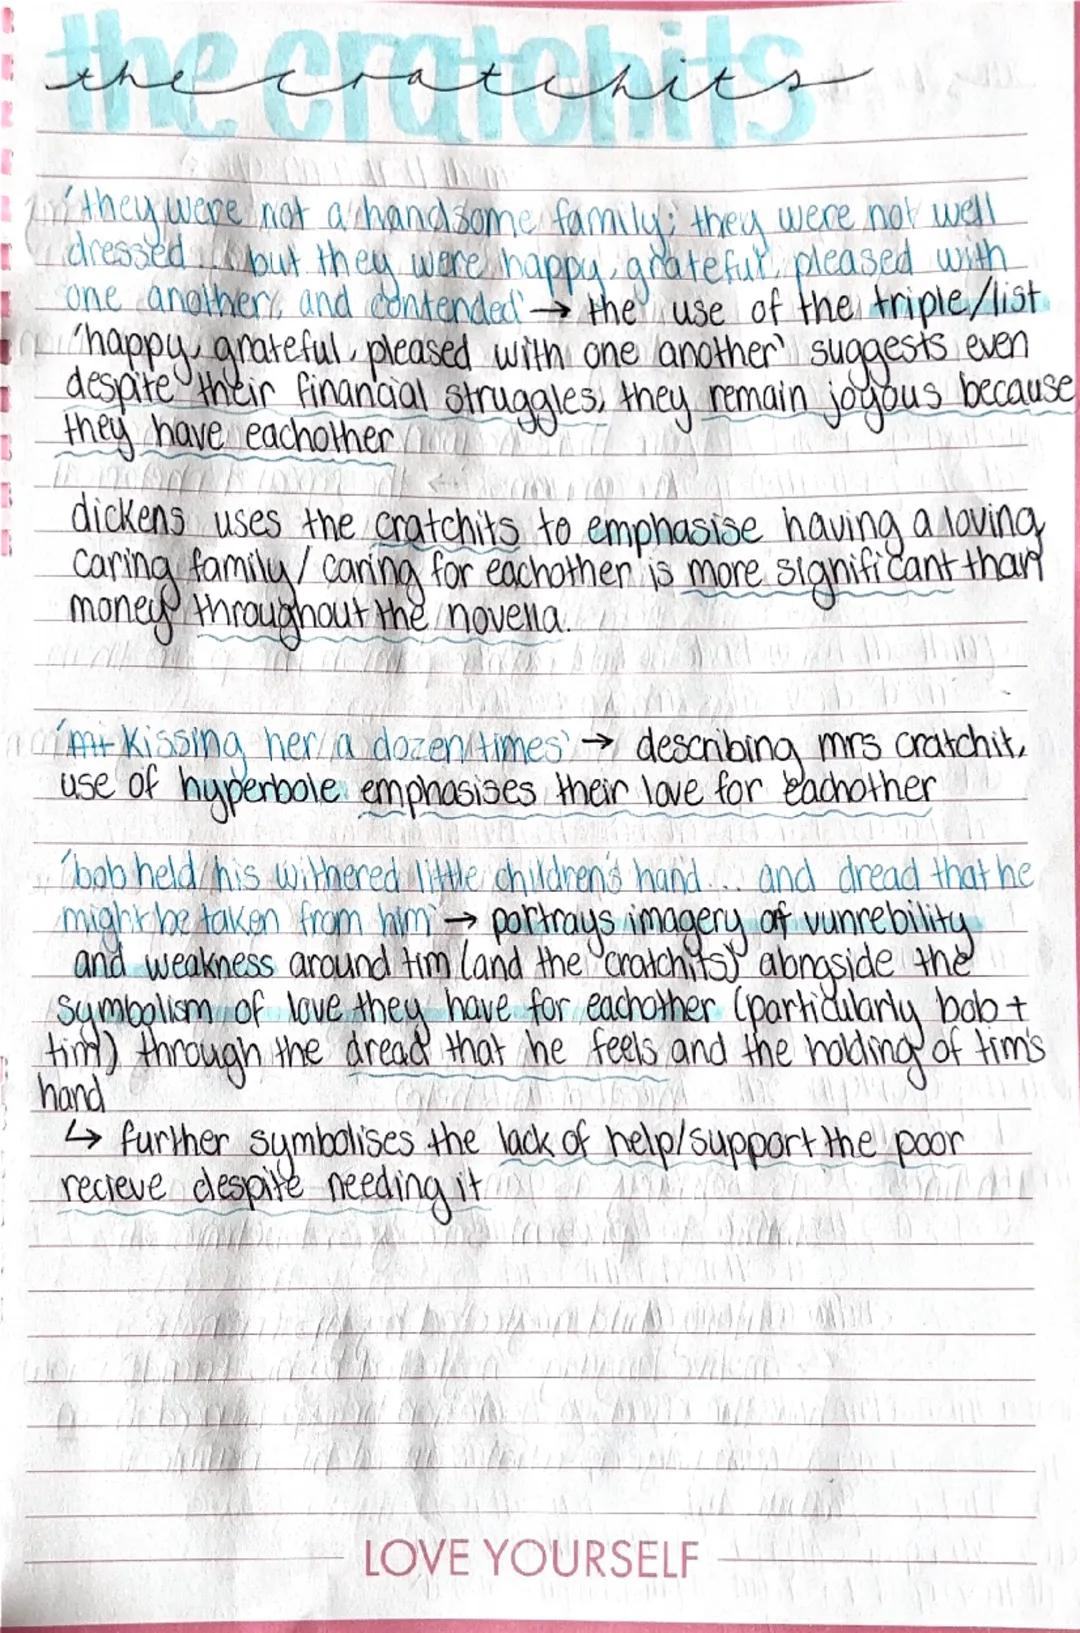 the cratchits
the cratchits
'they were not a handsome family; they were not well
dressed... but they were happy, grateful, pleased with
one another, and contended' → the use of the triple/list
'happy, grateful, pleased with one another' suggests even
despite their financial struggles, they remain joyous because
they have eachother
dickens uses the cratchits to emphasise having a loving,
caring family/ caring for eachother is more significant than
money throughout the novella.
' kissing her a dozen times' → describing mrs cratchit,
use of hyperbole emphasises their love for eachother
'bob held his withered little children's hand... and dread that he
might be taken from him' → portrays imagery of vunrebility
and weakness around tim (and the cratchits) alongside the
symbolism of love they have for eachother (particularly bob +
tim) through the dread that he feels and the holding of tim's
hand
↳ further symbolises the lack of help/support the poor
recieve despite needing it
LOVE YOURSELF